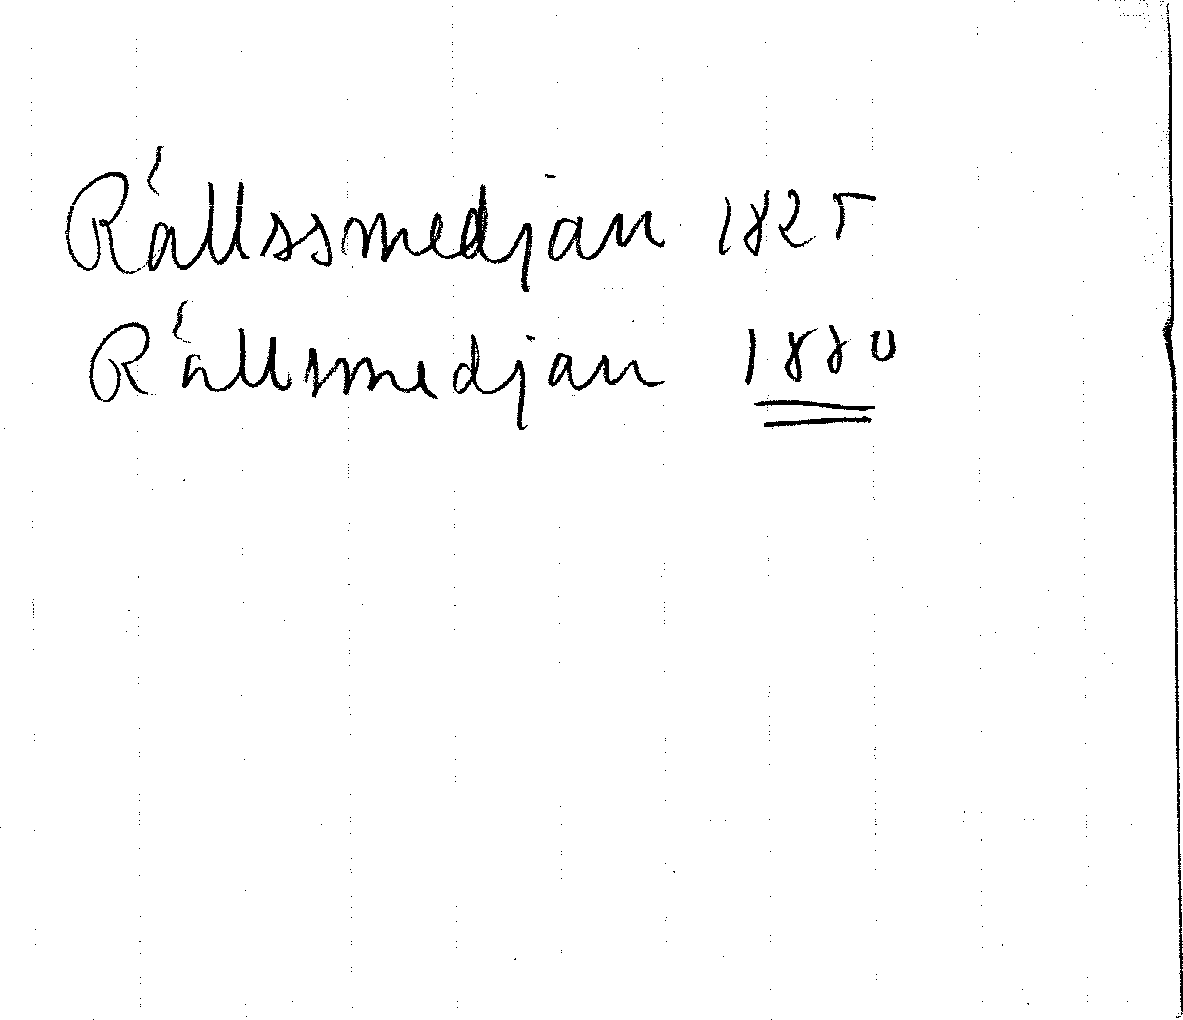 Rållssmedjan 1825
Rållsmedjan 1880